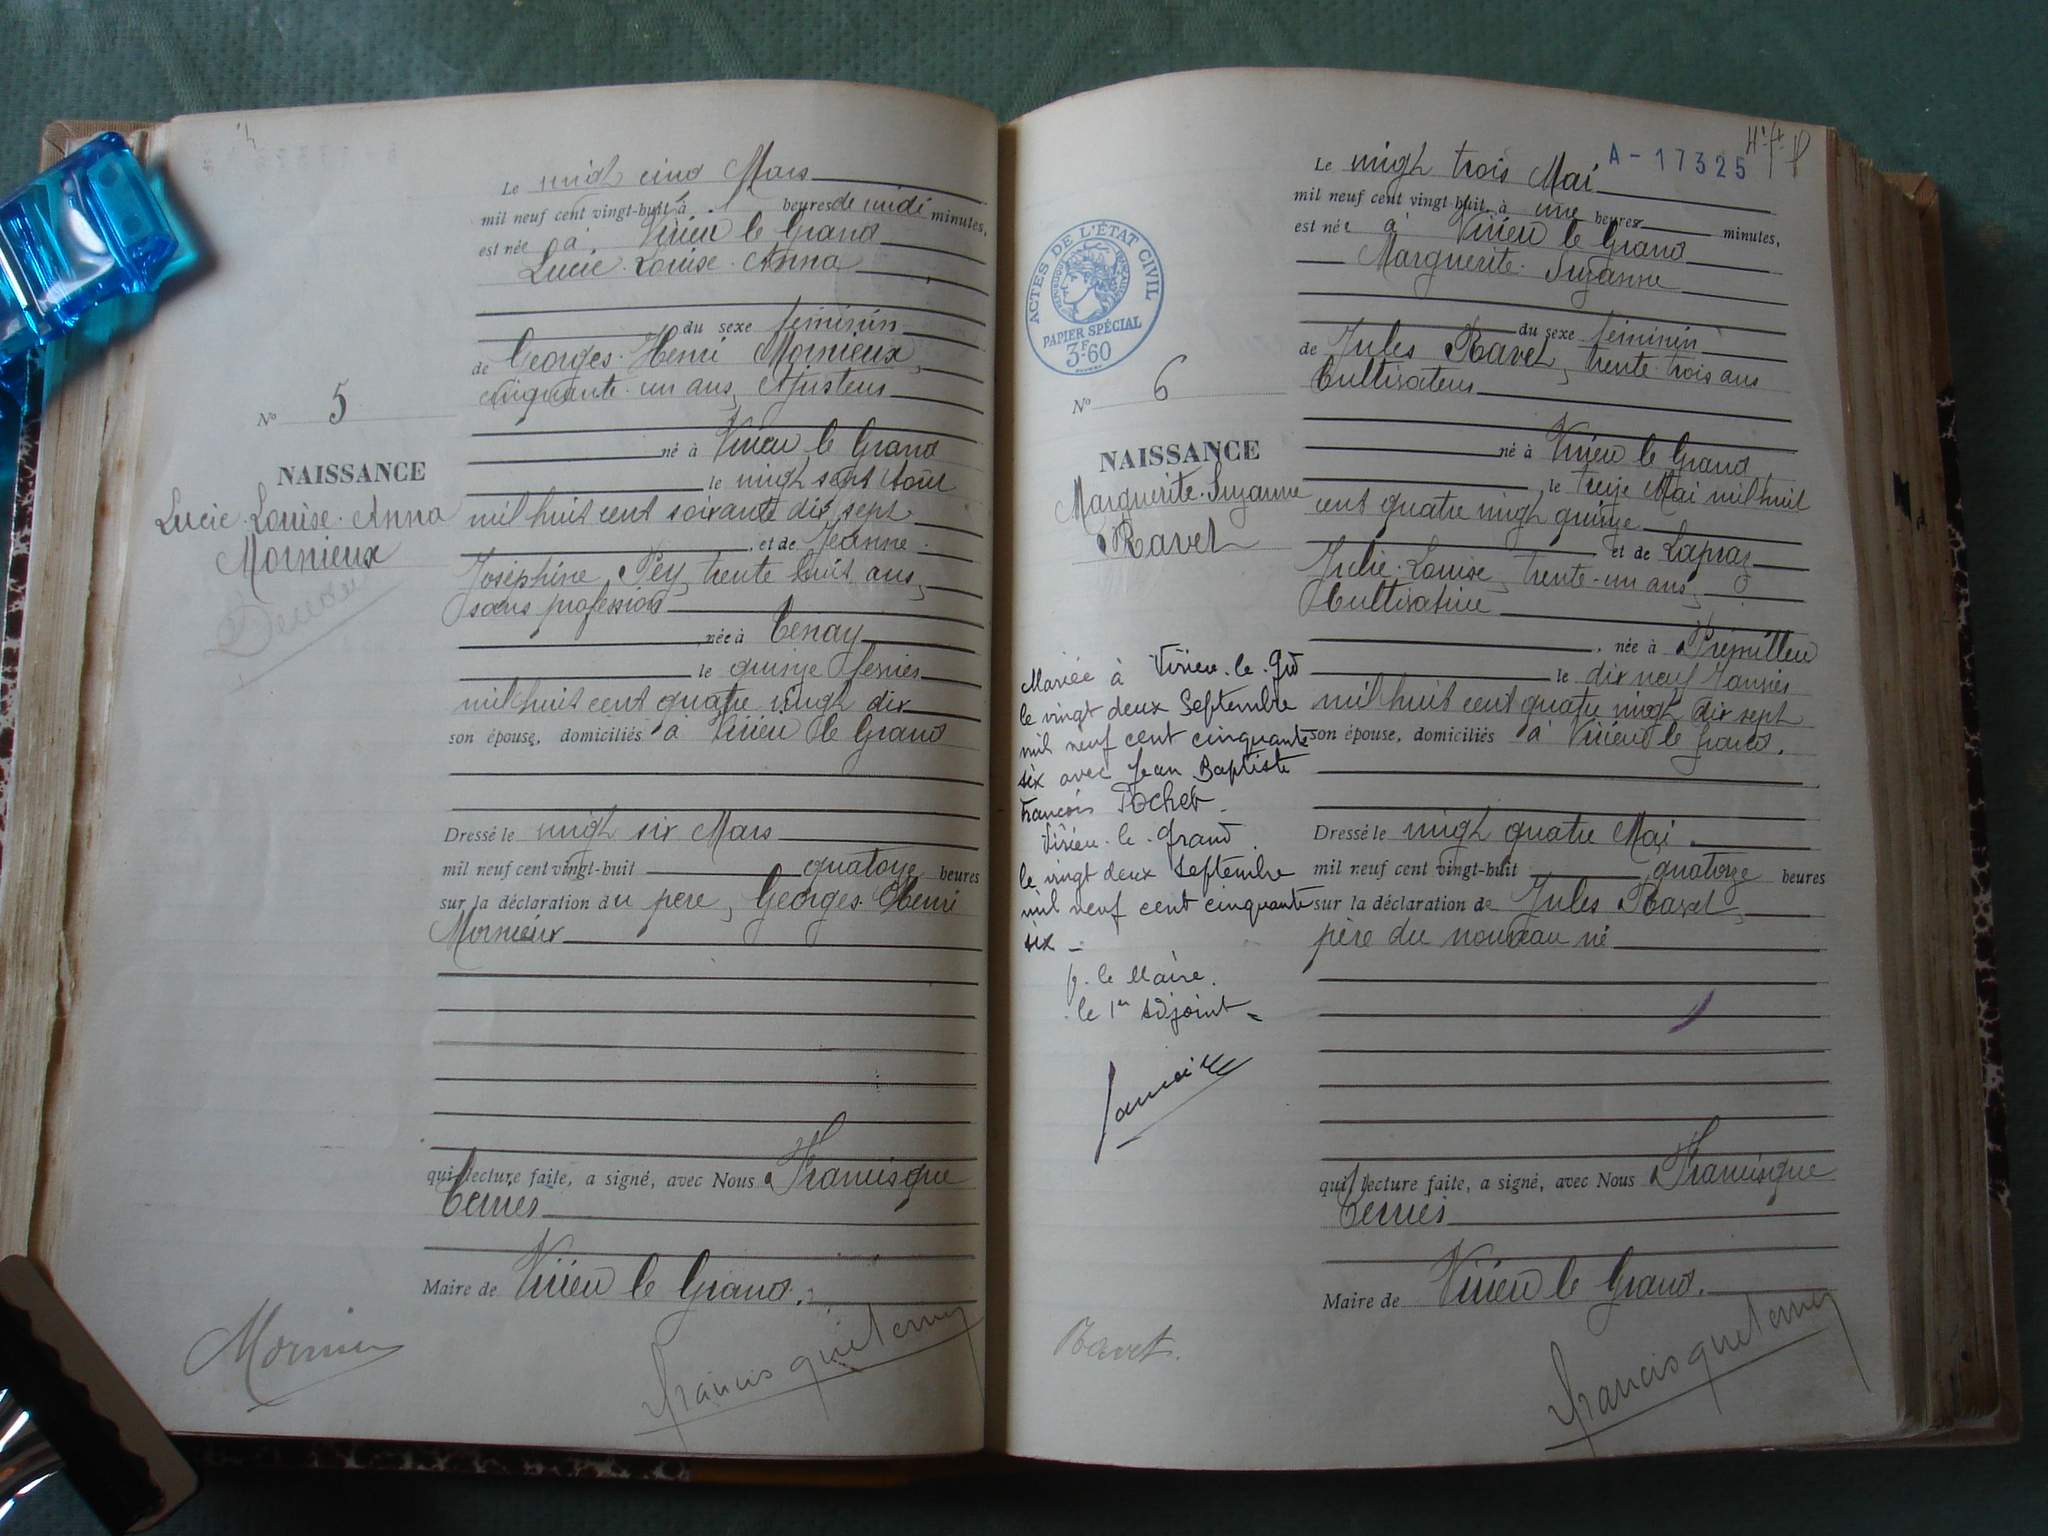 Le vingt cinq Mars
mil neuf cent vingt-huit à heures de midi minutes,
est née à Virieu le Grand
Lucie Louise Anna
du sexe féminin
de Georges Henri Mornieux,
cinquante-un ans, Ajusteur
né à Virieu le Grand
le vingt sept Août
mil huit cent soixante dix sept
et de Jeanne
Joséphine Pey, trente huit ans,
sans profession
née à Tenay
le quinze février
mil huit cent quatre vingt dix
son épouse, domiciliés à Virieu le Grand
Dressé le vingt six Mars
mil neuf cent vingt-huit quatorze heures
sur la déclaration du père, Georges Henri
Mornieux
qui, lecture faite, a signé, avec Nous Francisque
Ternier
Maire de Virieu le Grand.
No 5
NAISSANCE
Lucie Louise Anna
Mornieux
Mornieux
Francisque Ternier
A-17325
Le vingt trois Mai
mil neuf cent vingt-huit, à une heures minutes,
est née à Virieu le Grand
Marguerite Suzanne
du sexe féminin
de Jules Ravet, trente-trois ans
Cultivateur
né à Virieu le Grand
le treize Mai mil huit
cent quatre vingt quinze
et de Lapraz
Julie Louise, trente-un ans,
Cultivatrice
née à Prémillieu
le dix neuf Janvier
mil huit cent quatre vingt dix sept
son épouse, domiciliés à Virieu le Grand.
Dressé le vingt quatre Mai
mil neuf cent vingt-huit quatorze heures
sur la déclaration de Jules Ravet,
père du nouveau né
qui, lecture faite, a signé, avec Nous Francisque
Ternier
Maire de Virieu le Grand.
ACTES DE L'ÉTAT CIVIL
RÉPUBLIQUE FRANÇAISE
PAPIER SPÉCIAL
3F60
No 6
NAISSANCE
Marguerite Suzanne
Ravet
Mariée à Virieu-le-Gd
le vingt deux Septembre
mil neuf cent cinquante
six avec Jean Baptiste
François Pochet
Virieu-le-Grand
le vingt deux Septembre
mil neuf cent cinquante
six -
p. le Maire.
le 1er Adjoint
Ravet.
Francisque Ternier